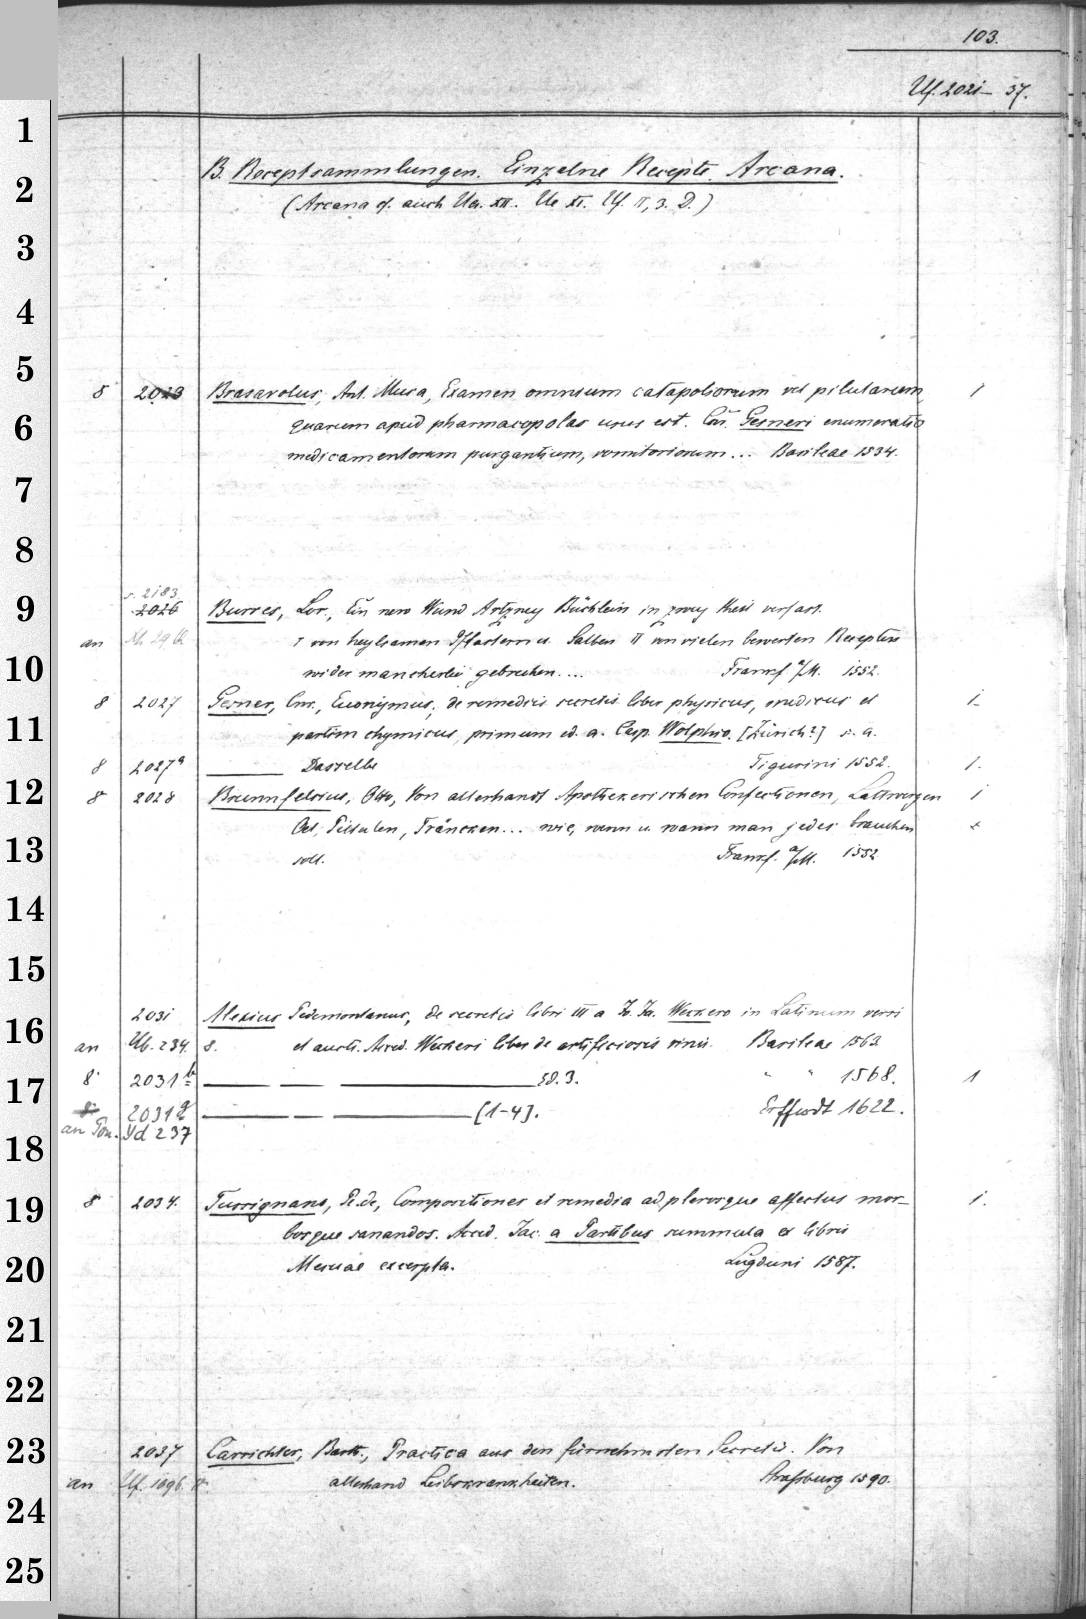 103.
Uf. 2021–37.
B. Receptsammlungen. Einzelne Recepte. Arcana.
(Arcana cf. auch Ua. XII. Ue XI. Uf. II, 3. D.)
8 2023 Brasavolus, Ant. Musa, Examen omnium catapotiorum vel pilularum, 1
quarum apud pharmacopolas usus est. Cûr. Gesneri enumeratio
medicamentorum purgantium, vomitoriorum... Basileae 1534.
s. 2183
2026 Burres, Lor., Ein new Wund Artzney Büchlein in zwey theil verfast.
an I von heylsamen Pflastern u. Salben II von vielen bewerten Recepten
wider mancherlei gebrechen.... Francf a/M. 1552.
8 2027 Gesner, Cnr., Euonymus, de remediis secretis liber physicus, medicus et 1
partim chymicus, primum ed. a. Casp. Wolphio. [Zürich?] s. a.
8 2027a ——— Dasselbe Tigurini 1552. 1.
8 2028 Brunnfelsius, Otto, Von allerhandt Apothekerischen Confectionen, Lattwergen 1
Oel, Pillulen, Träncken... wie, wenn u. wann man jedes brauchen +
soll. Francf. a/M. 1552
2031 Alexius Pedemontanus, de secretis libri III a Jo. Ja. Weckero in Latinum versi
an Ub. 234. 8. et aucti. Acced. Weckeri liber de artificiosis vinis. Basileae 1563.
8° 2031b ——— —— ——————— Ed. 3. " " 1568. 1
8 2031g ——— —— ——————— [1-4]. Erffurdt 1622.
an Yd 237
8 2034. Tussignano, Pe. de, Compositiones et remedia ad plerosque affectus mor- 1.
bosque sanandos. Acced. Jac. a Partibus summula ex libris
Mesuae excerpta. Lugduni 1587.
2037 Carrichter, Barth., Practica aus den fürnehmsten Secretis. Von
an Uf. 1096. allerhand Leibskrankheiten. Straßburg 1590.
1
2
3
4
5
6
7
8
9
10
11
12
13
14
15
16
17
18
19
20
21
22
23
24
25